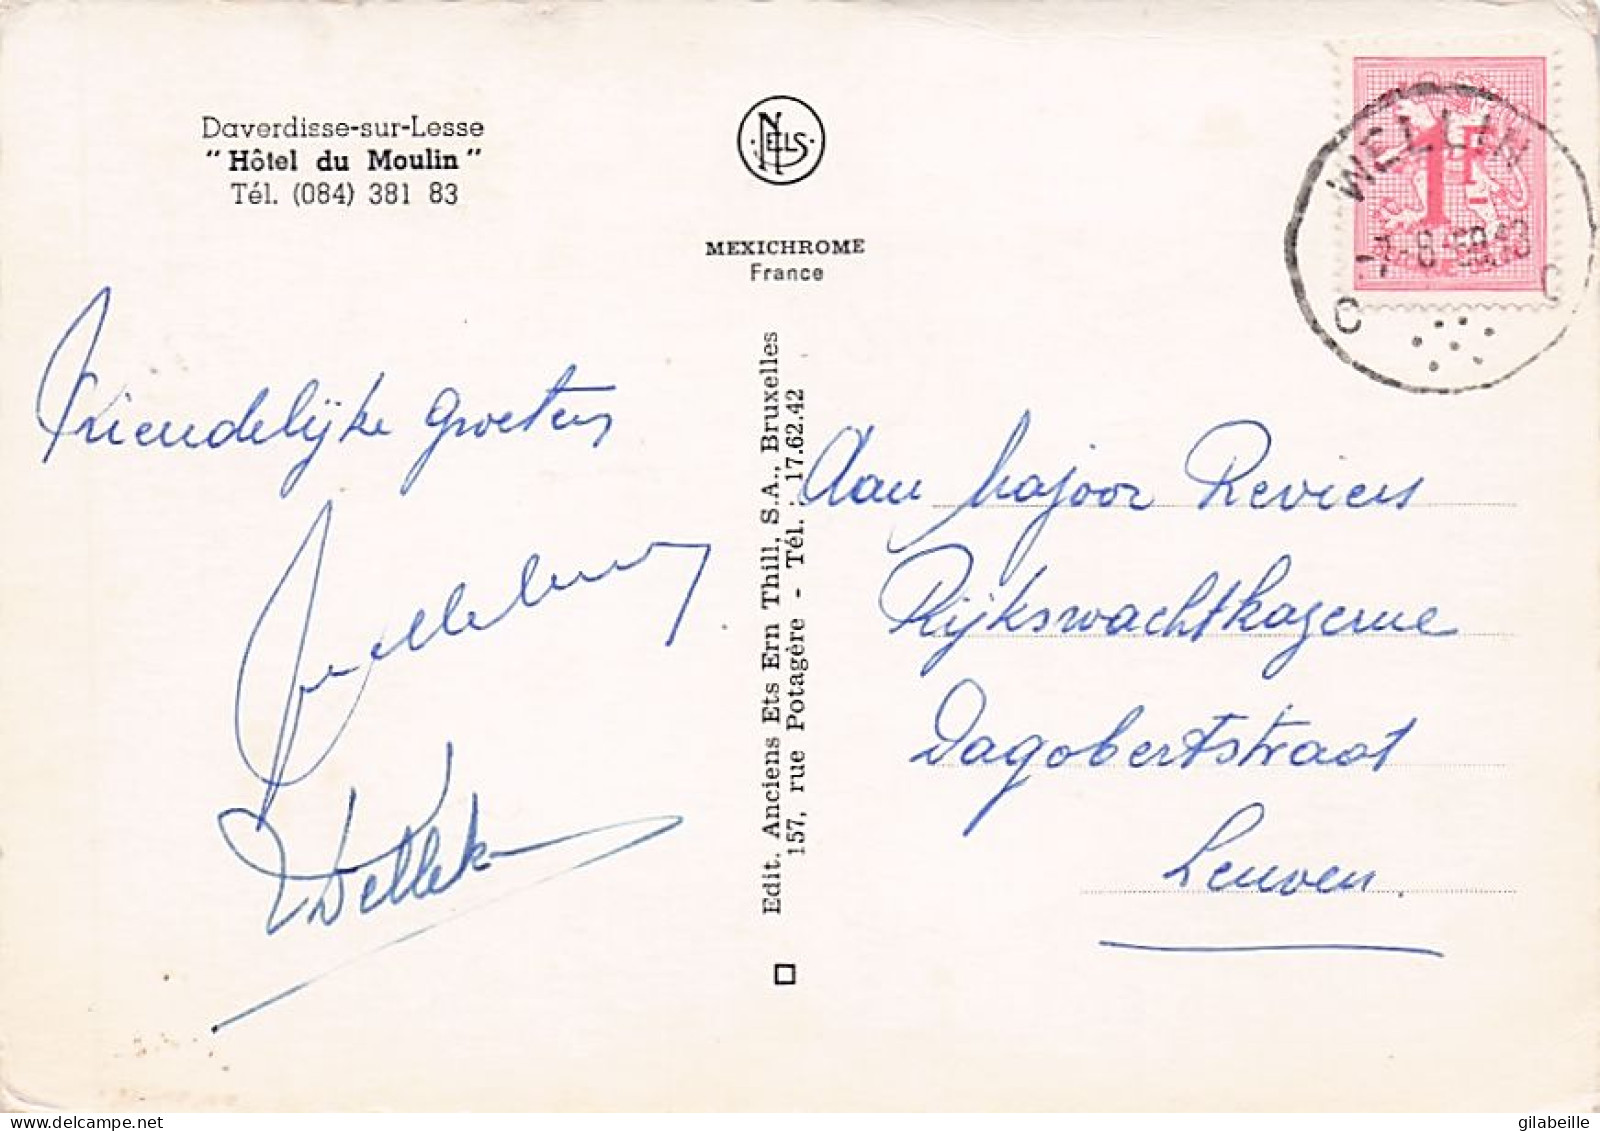 Daverdisse-sur-Lesse
"Hôtel du Moulin"
Tél. (084) 381 83
NELS
MEXICHROME
France
WELLIN
1F
C C
Vriendelijke groeten
Edit. Anciens Ets Ern Thill, S.A., Bruxelles
157, rue Potagère - Tél. : 17.62.42
Aan Majoor Reviers
Rijkswachtkazerne
Dagobertstraat
Leuven.
gilabeille